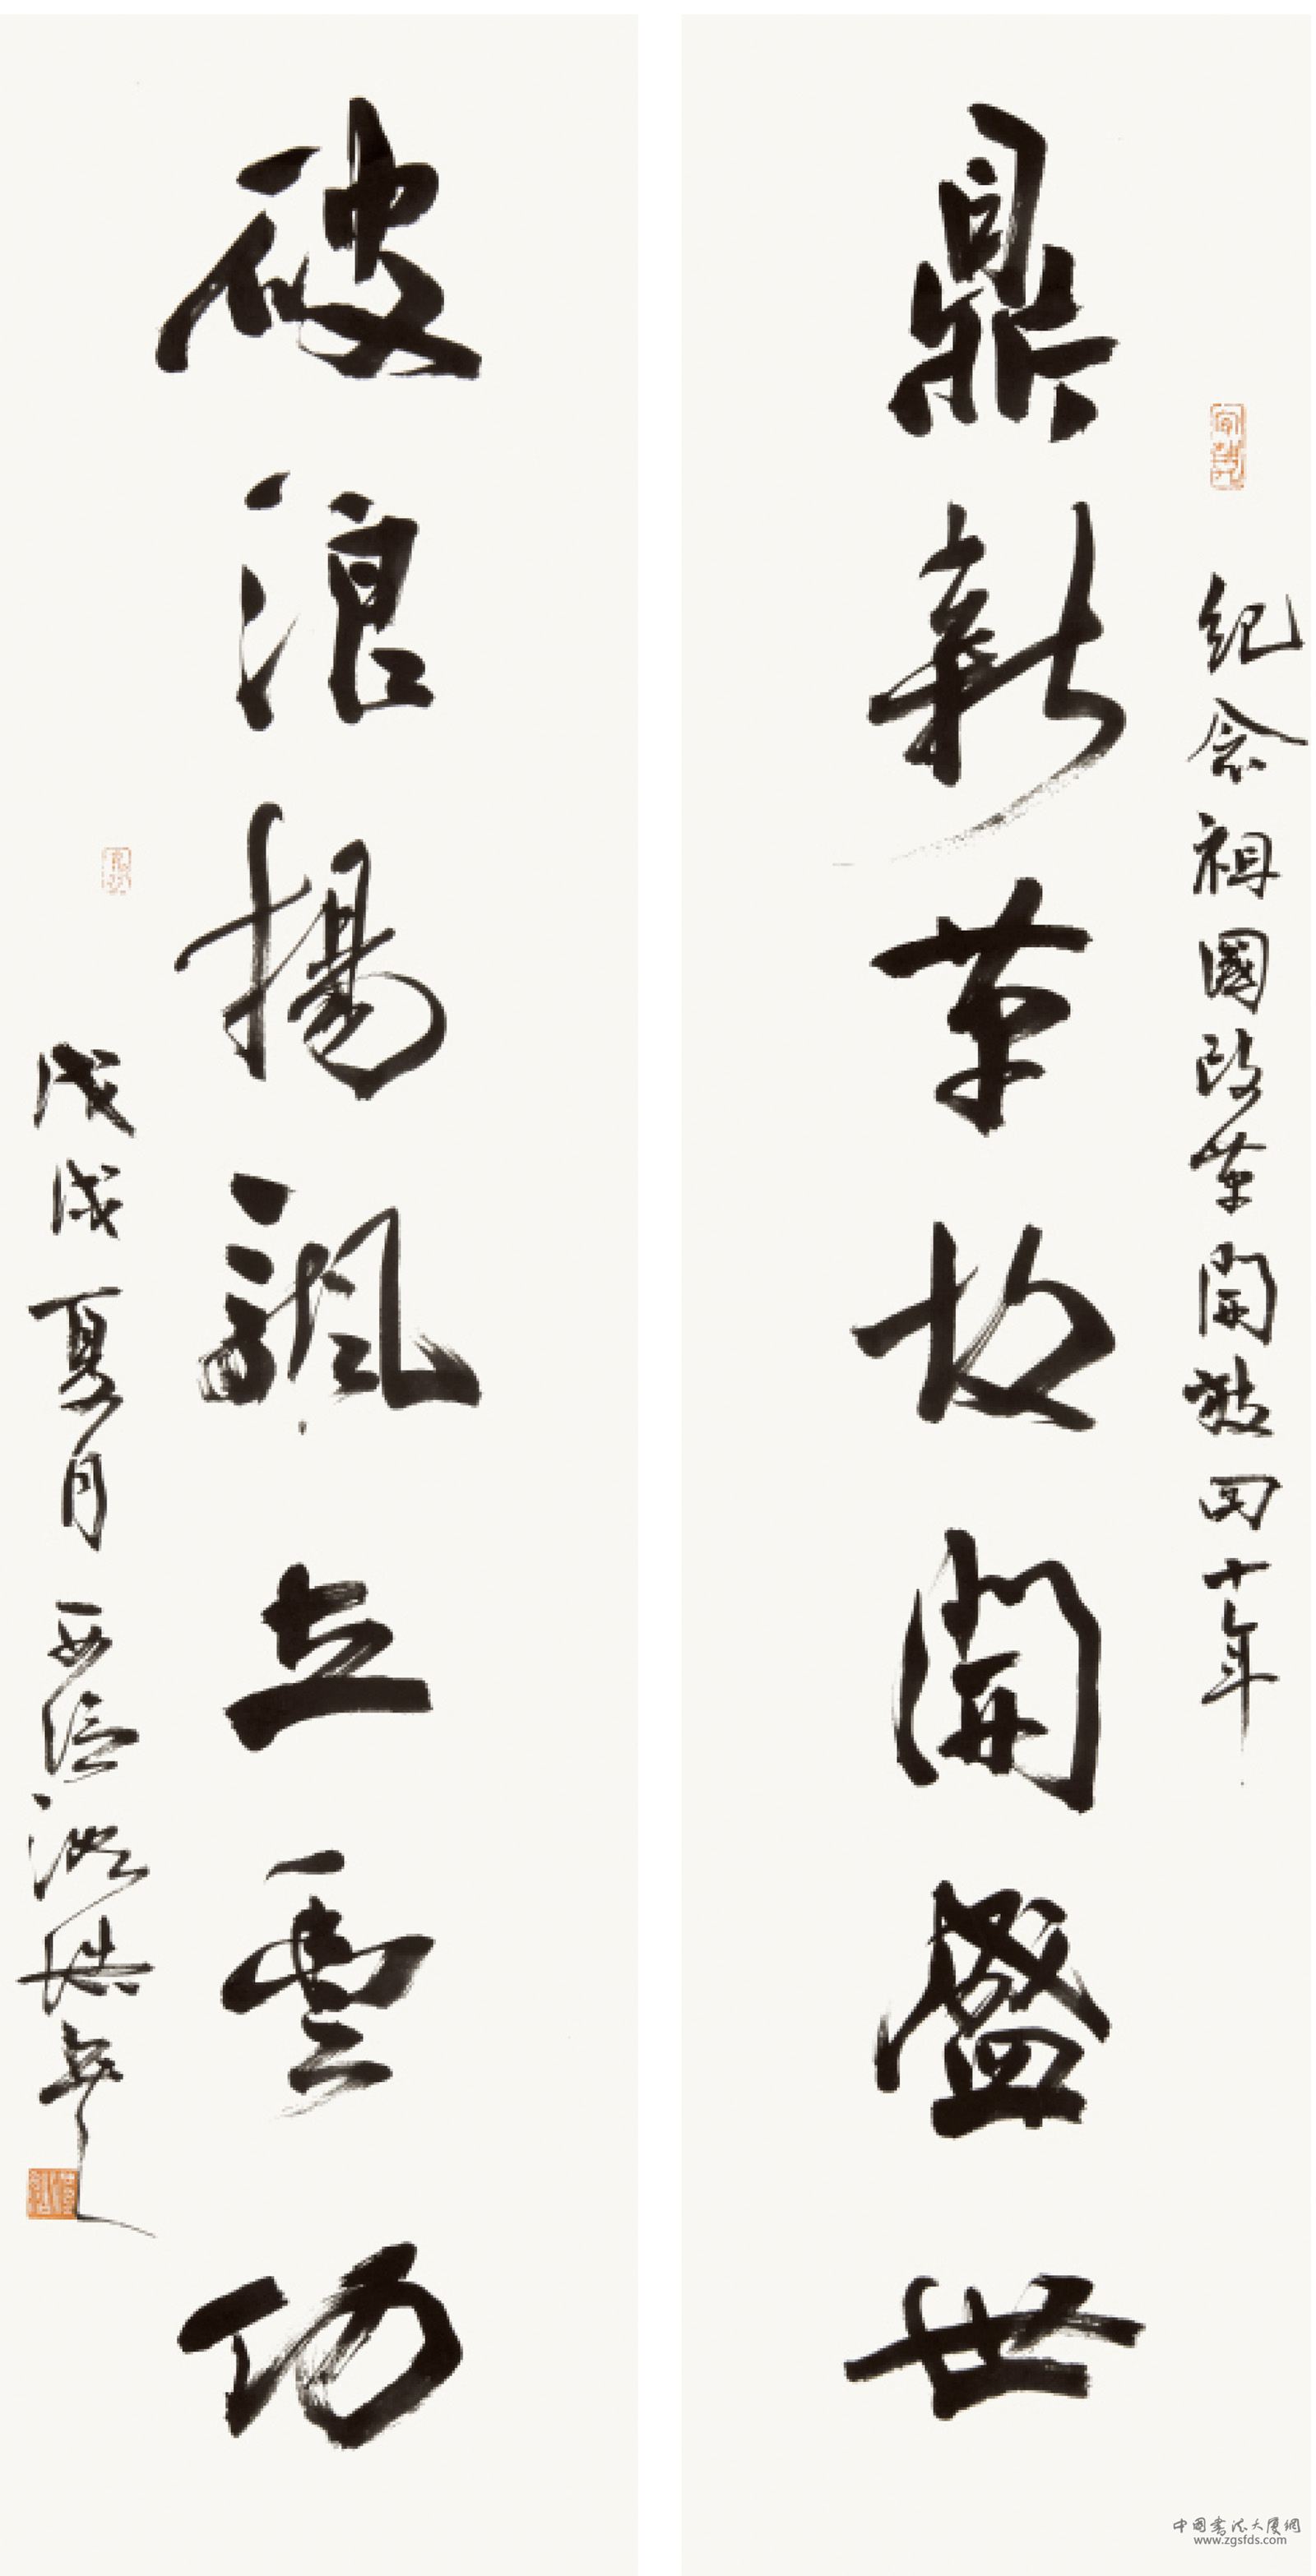 纪念祖國改革開放四十年
鼎新革故開盛世
破浪揚颿立雲功
戊戌夏月西泠洪
中国书法大厦網
www.zgsfds.com